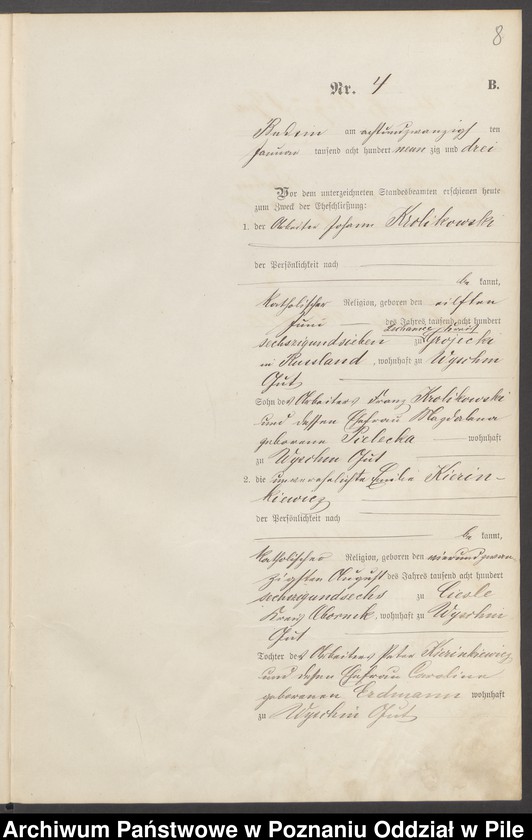 8
Nr. 4 B.
Budsin am achtundzwanzigsten
Januar tausend acht hundert neun zig und drei
Vor dem unterzeichneten Standesbeamten erschienen heute
zum Zweck der Eheschließung:
1. der Arbeiter Johann Krolikowski
der Persönlichkeit nach
be kannt,
katholischer Religion, geboren den eilften
Juni des Jahres tausend acht hundert
sechszigundsieben zu Grojecki
in Russland, wohnhaft zu Wyschin
Gut
Sohn des Arbeiters Franz Krolikowski
und dessen Ehefrau Magdalena
geborene Pielecka wohnhaft
zu Wyschin Gut
2. die unverehelichte Emilie Kierin-
kiewicz
der Persönlichkeit nach
be kannt,
katholischer Religion, geboren den vierundzwan-
zigsten August des Jahres tausend acht hundert
sechszigundsechs zu Ciesle
Kreis Obornik, wohnhaft zu Wyschin
Gut
Tochter des Arbeiters Peter Kierinkiewicz
und dessen Ehefrau Carolina
geborenen Erdmann wohnhaft
zu Wyschin Gut
Archiwum Państwowe w Poznaniu Oddział w Pile